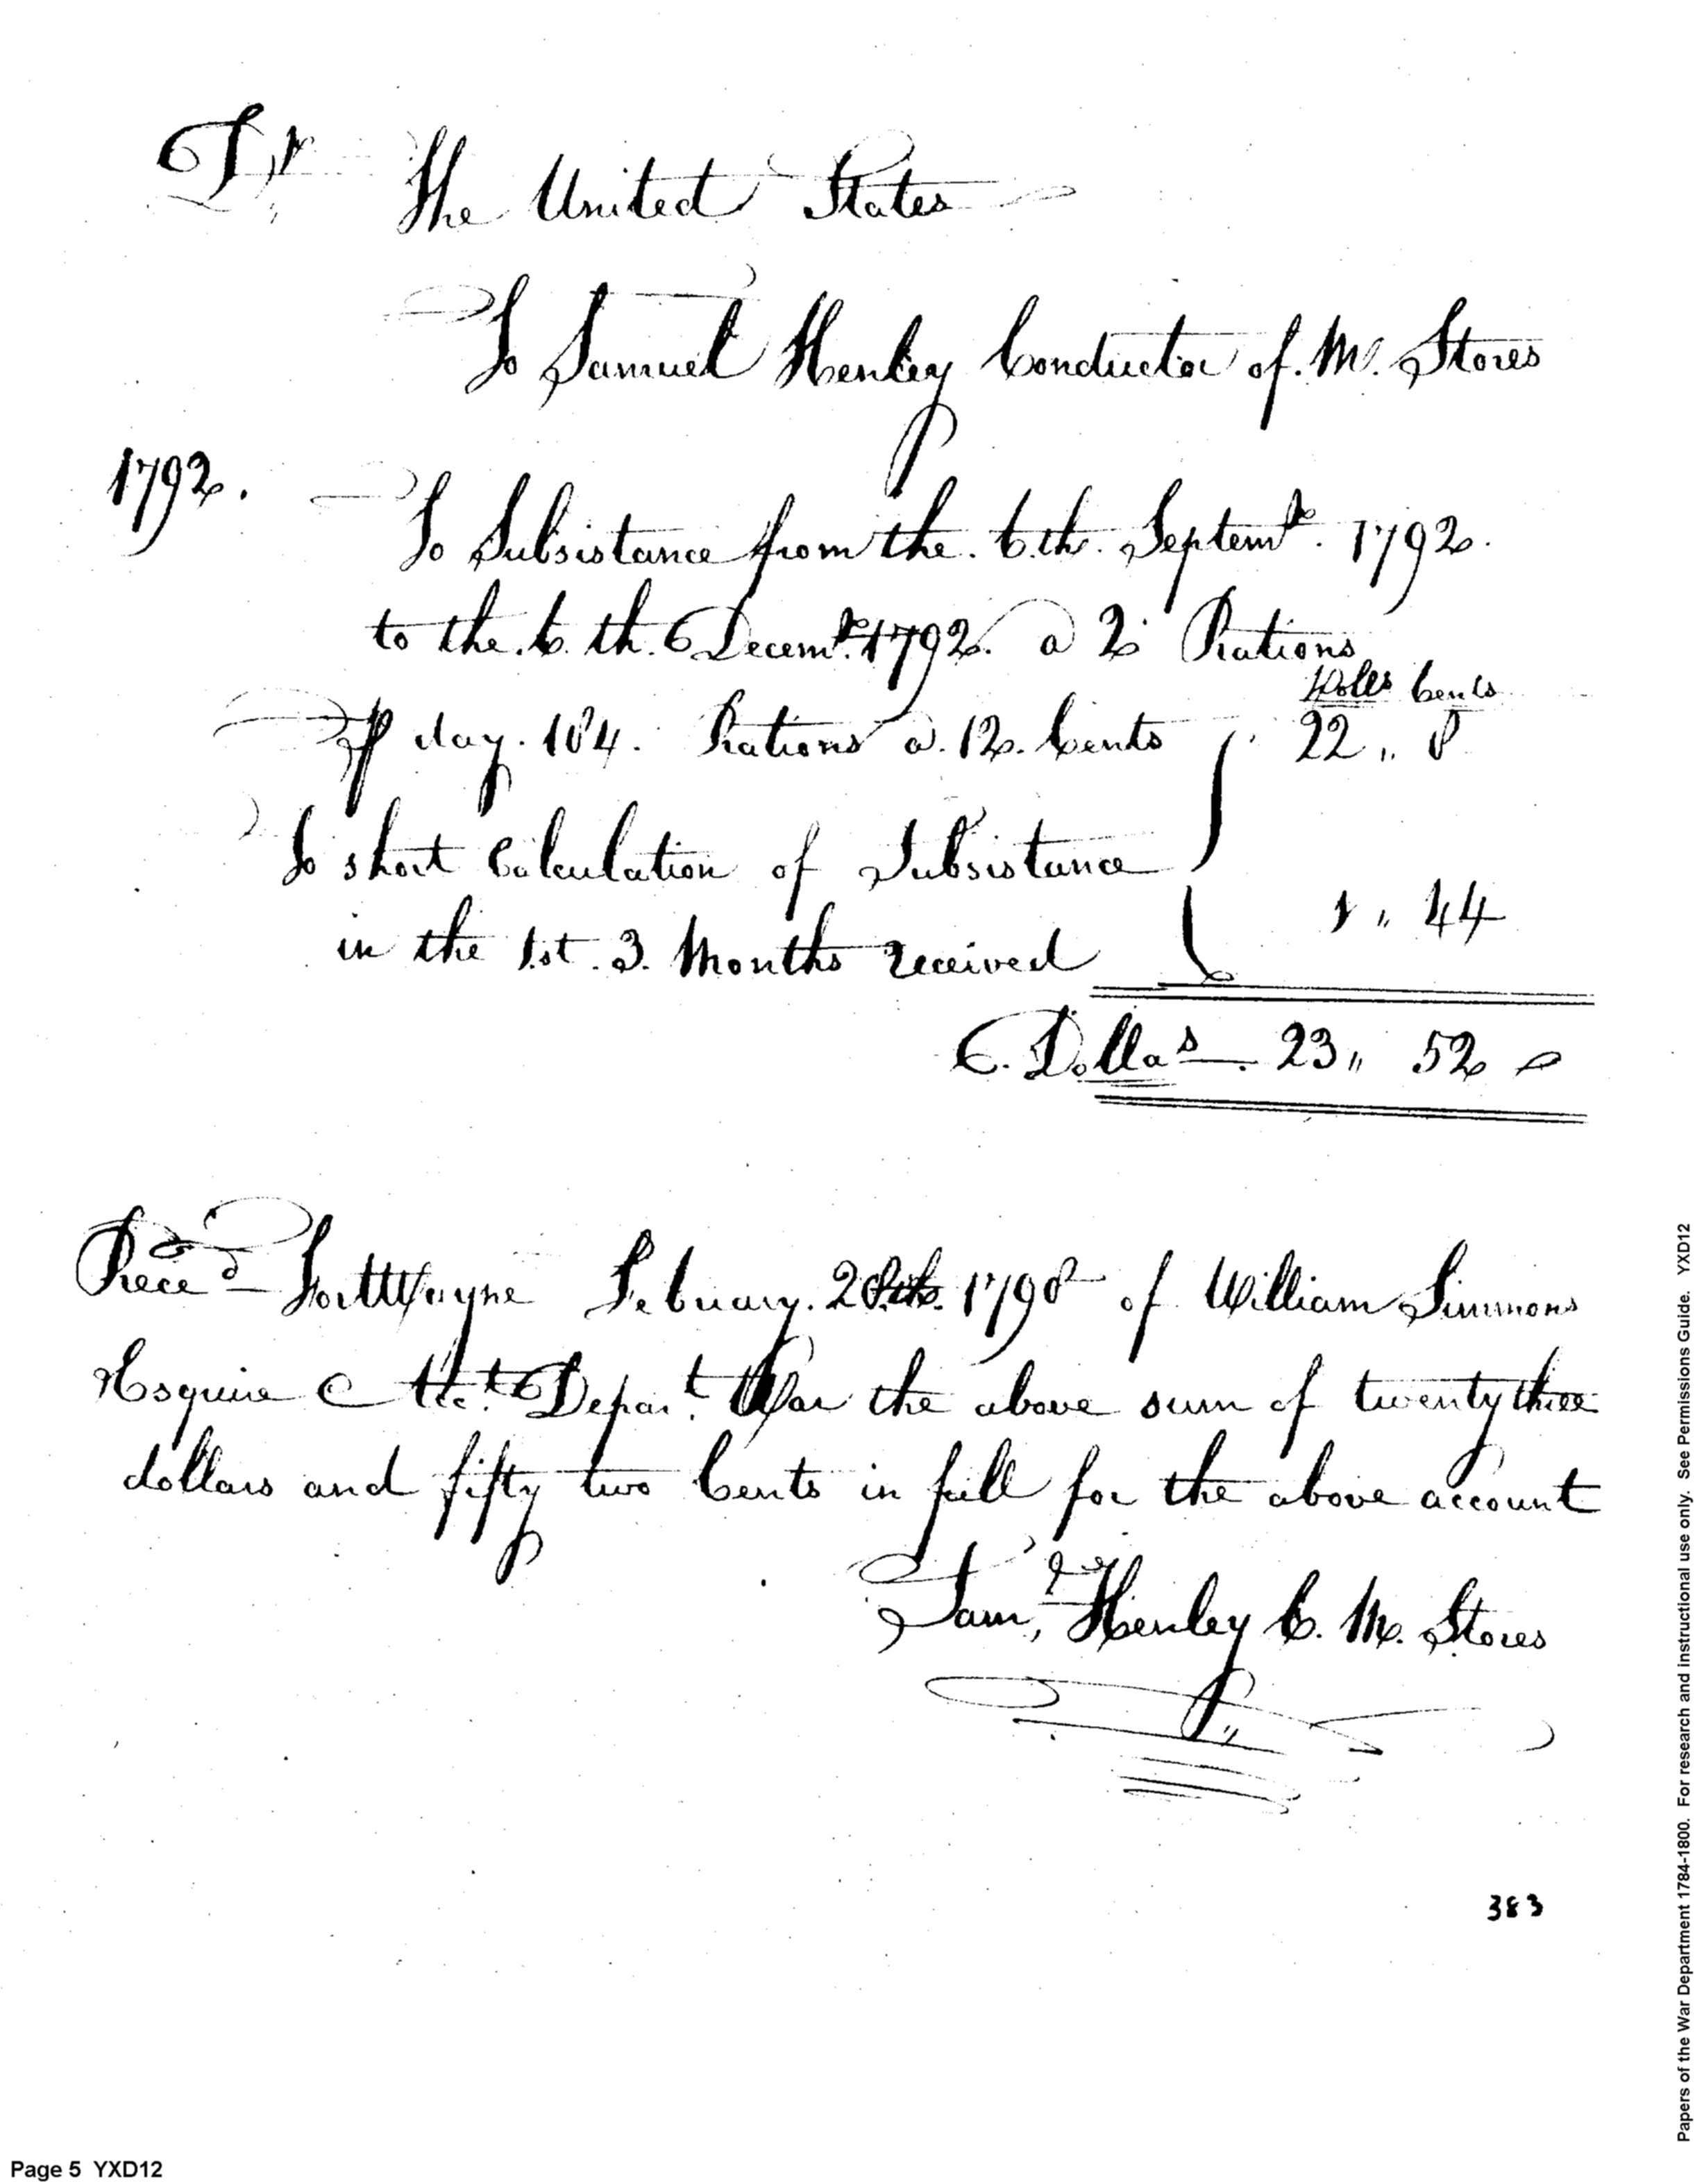 Dr. The United States
To Samuel Henley Conductor of. M. Stores
1792. To Subsistance from the. 6.th. Septemr. 1792.
to the. 6. th. Decemr. 1792. a 2 Rations
Dolls Cents
⅌ day. 184. Rations a. 12. Cents 22 ,, 8
To short Calculation of Subsistance
in the 1.st. 3. Months received 1 ,, 44
E. Dollas. 23 ,, 52
Reced Fort Wayne Febuary. 28th. 1798 of William Simmons
Esquire Acct. Depart. War the above sum of twenty three
dollars and fifty two Cents in full for the above account
Saml, Henley C. M. Stores
383
Page 5 YXD12
Papers of the War Department 1784-1800. For research and instructional use only. See Permissions Guide. YXD12